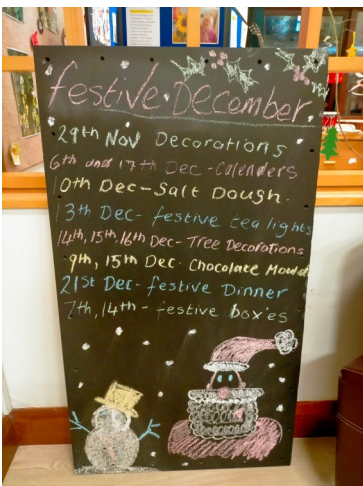 festive December
29th Nov Decorations
6th and 17th Dec-Calenders
10th Dec-Salt Dough.
13th Dec- festive tea lights
14th, 15th, 16th Dec-Tree Decorations
9th, 15th Dec. Chocolate
21st Dec- festive Dinner
7th, 14th- festive box'es